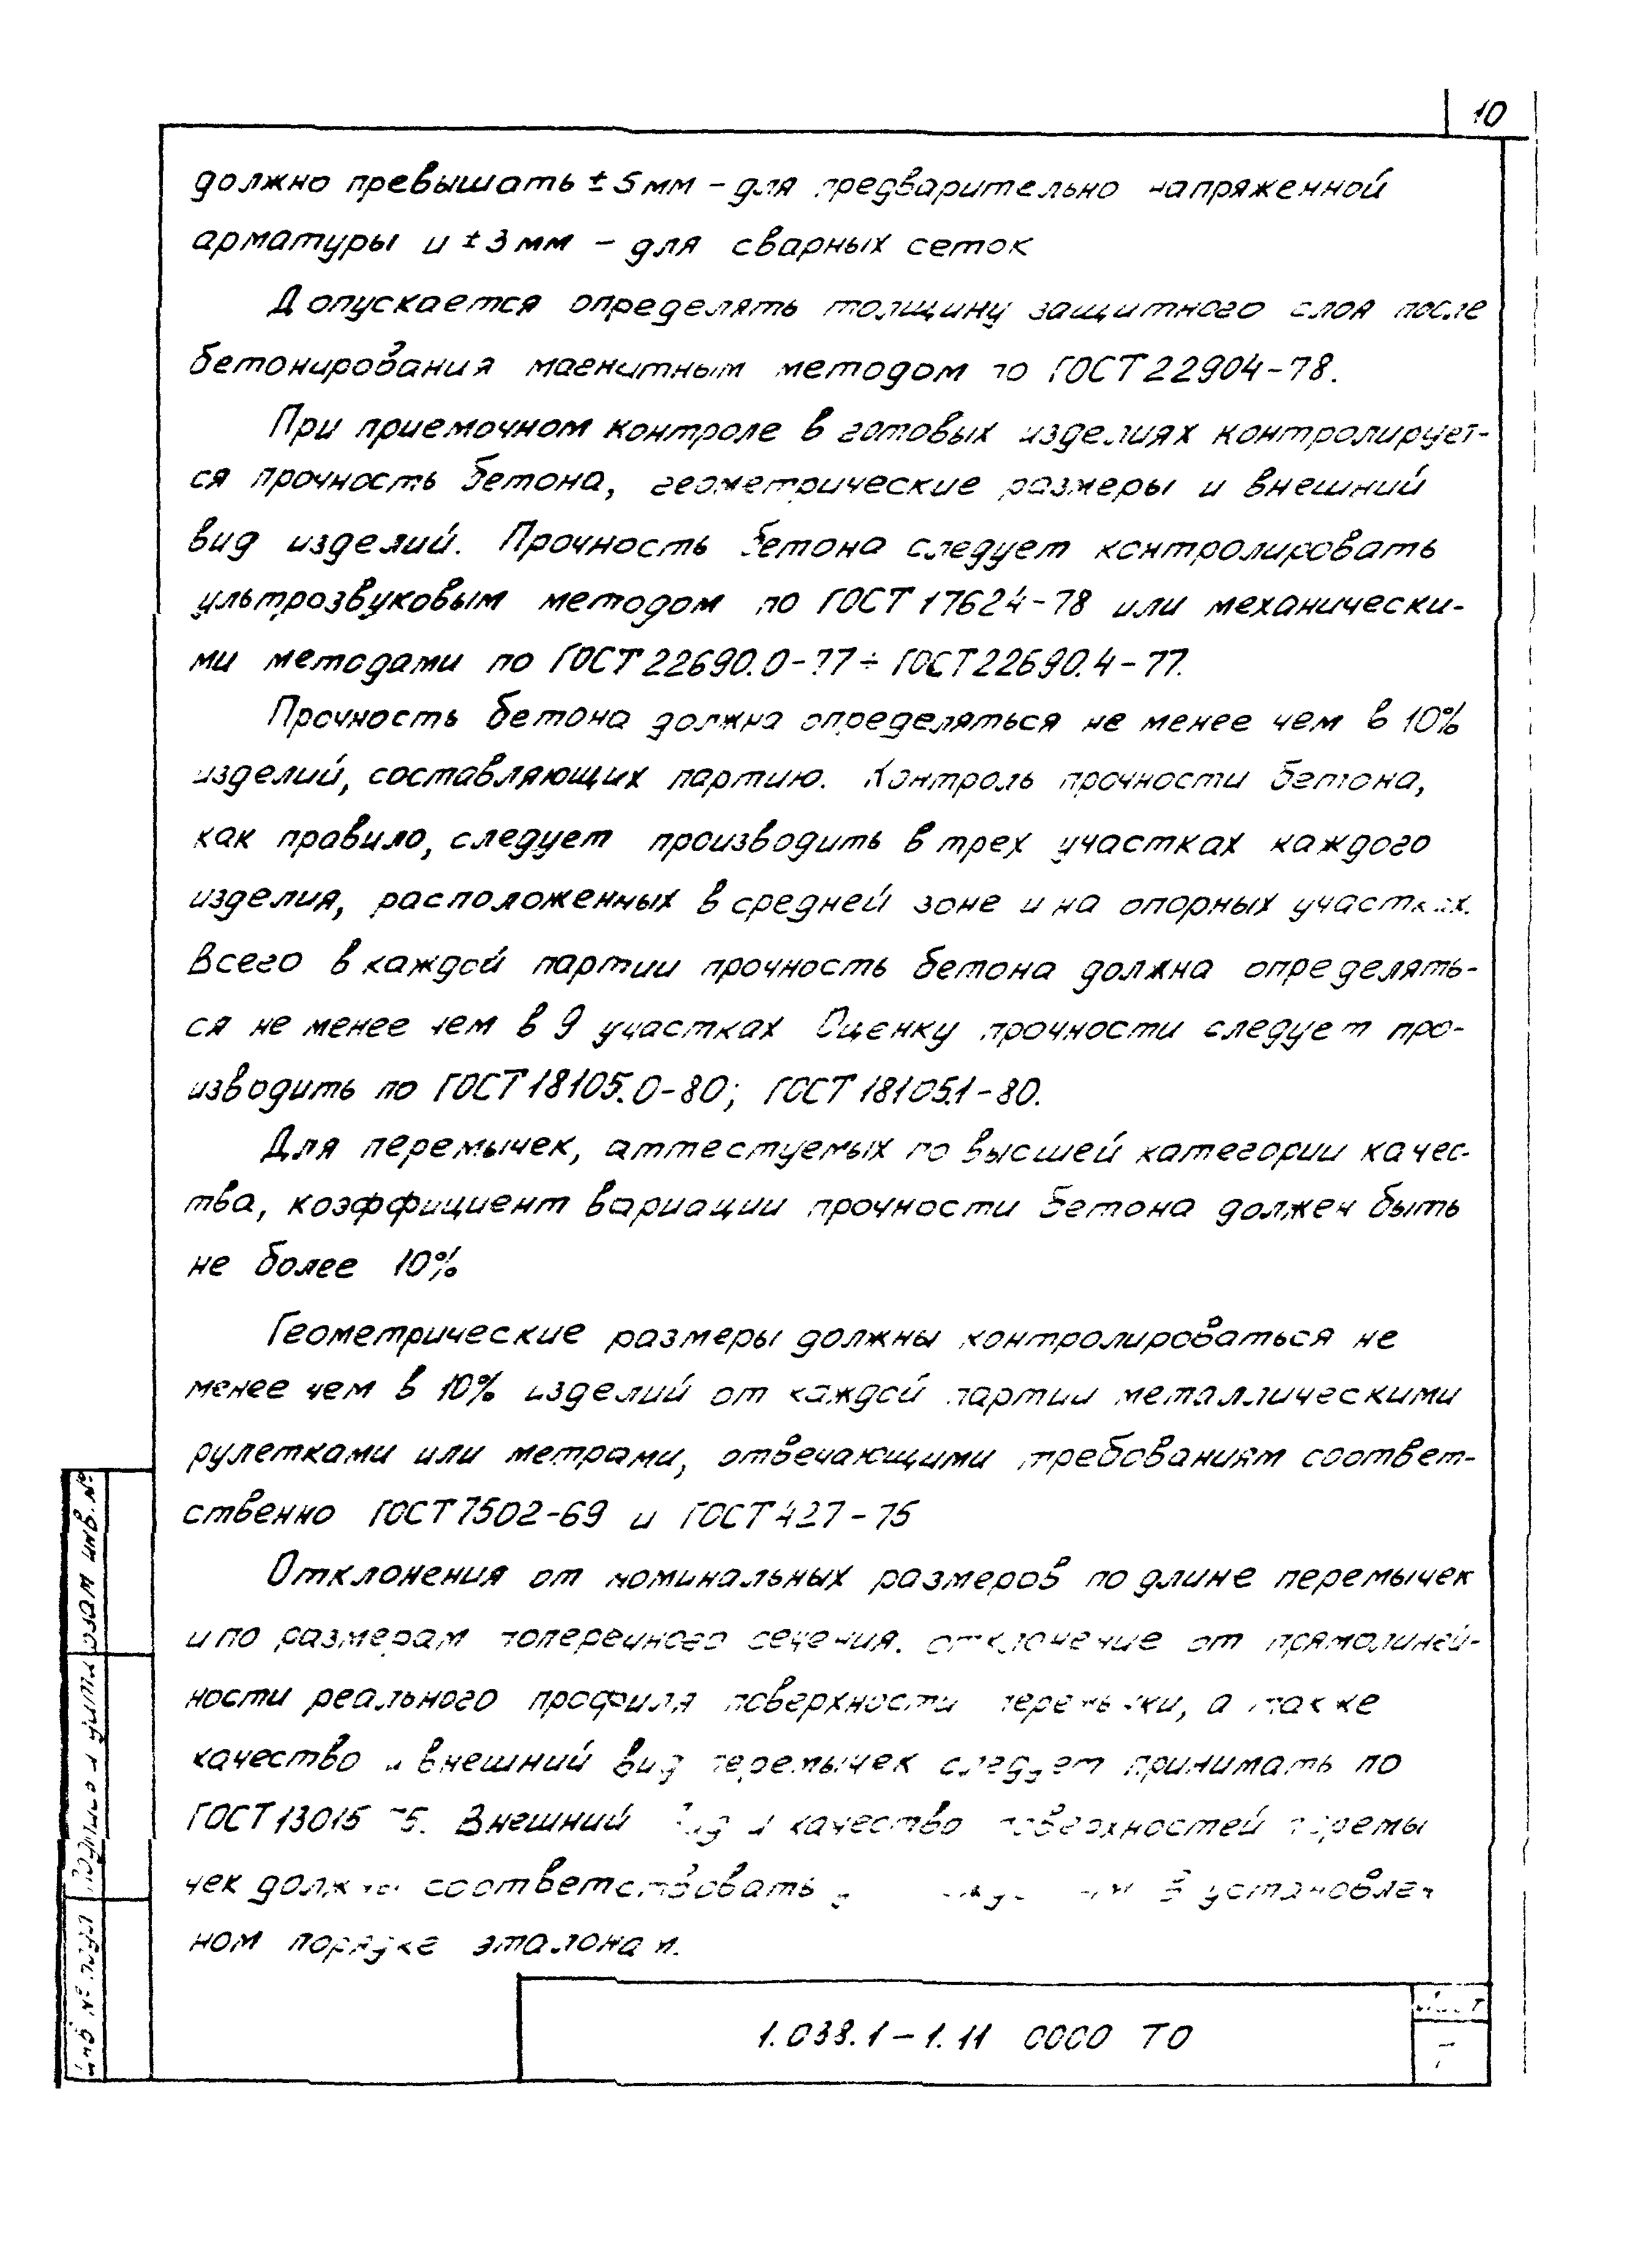 10
должно превышать ± 5 мм – для предварительно напряженной
арматуры и ± 3 мм – для сварных сеток
Допускается определять толщину защитного слоя после
бетонирования магнитным методом по ГОСТ 22904-78.
При приемочном контроле в готовых изделиях контролирует-
ся прочность бетона, геометрические размеры и внешний
вид изделий. Прочность бетона следует контролировать
ультрозвуковым методом по ГОСТ 17624-78 или механически-
ми методами по ГОСТ 22690.0-77 ÷ ГОСТ 22690.4-77.
Прочность бетона должна определяться не менее чем в 10%
изделий, составляющих партию. Контроль прочности бетона,
как правило, следует производить в трех участках каждого
изделия, расположенных в средней зоне и на опорных участках.
Всего в каждой партии прочность бетона должна определять-
ся не менее чем в 9 участках Оценку прочности следует про-
изводить по ГОСТ 18105.0-80; ГОСТ 18105.1-80.
Для перемычек, аттестуемых по высшей категории качес-
тва, коэффициент вариации прочности бетона должен быть
не более 10%
Геометрические размеры должны контролироваться не
менее чем в 10% изделий от каждой партии металлическими
рулетками или метрами, отвечающими требованиям соответ-
ственно ГОСТ 7502-69 и ГОСТ 427-75
Отклонения от номинальных размеров по длине перемычек
и по размерам поперечного сечения, отклонение от прямолиней-
ности реального профиля поверхности перемычки, а также
качество и внешний вид перемычек следует принимать по
ГОСТ 13015-75. Внешний вид и качество поверхностей перемы
чек должны соответствовать в установлен
ном порядке эталонам.
1.038.1-1.11 0000 ТО
Лист
Взам инв. №
Подпись и дата
Инв № подл